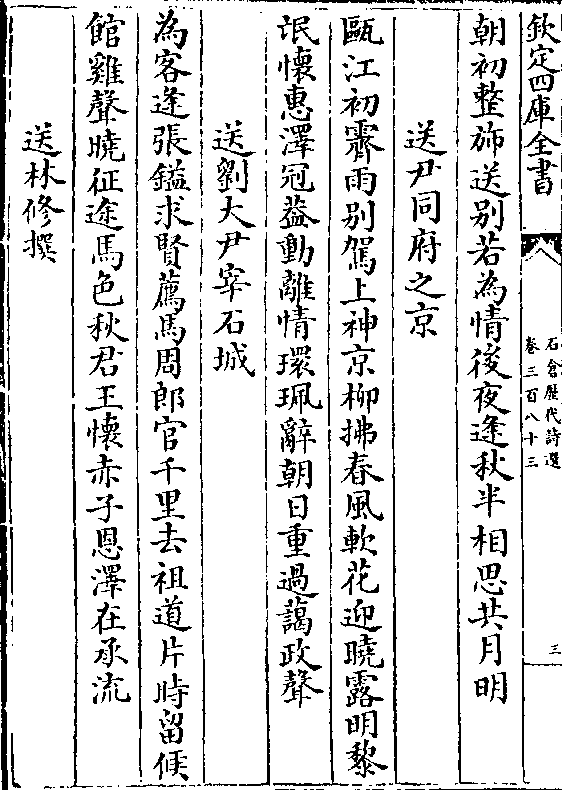 欽定四庫全書
石倉歷代詩選
卷三百八十三
三
朝初整斾送别若為情後夜逢秋半相思共月明
送尹同府之京
甌江初霽雨别駕上神京柳拂春風軟花迎曉露明黎
氓懷惠澤冠葢動離情環珮辭朝日重過藹政聲
送劉大尹宰石城
為客逢張鎰求賢薦馬周郎官千里去祖道片時留候
館雞聲曉征途馬色秋君王懷赤子恩澤在承流
送林修撰